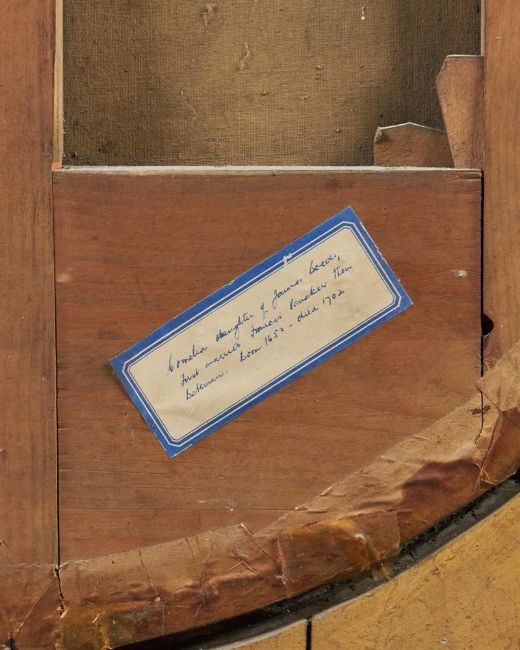 Cornelia daughter of James Boevey,
First married Francis Vaneker then
Bateman. Born 1652 – died 1702